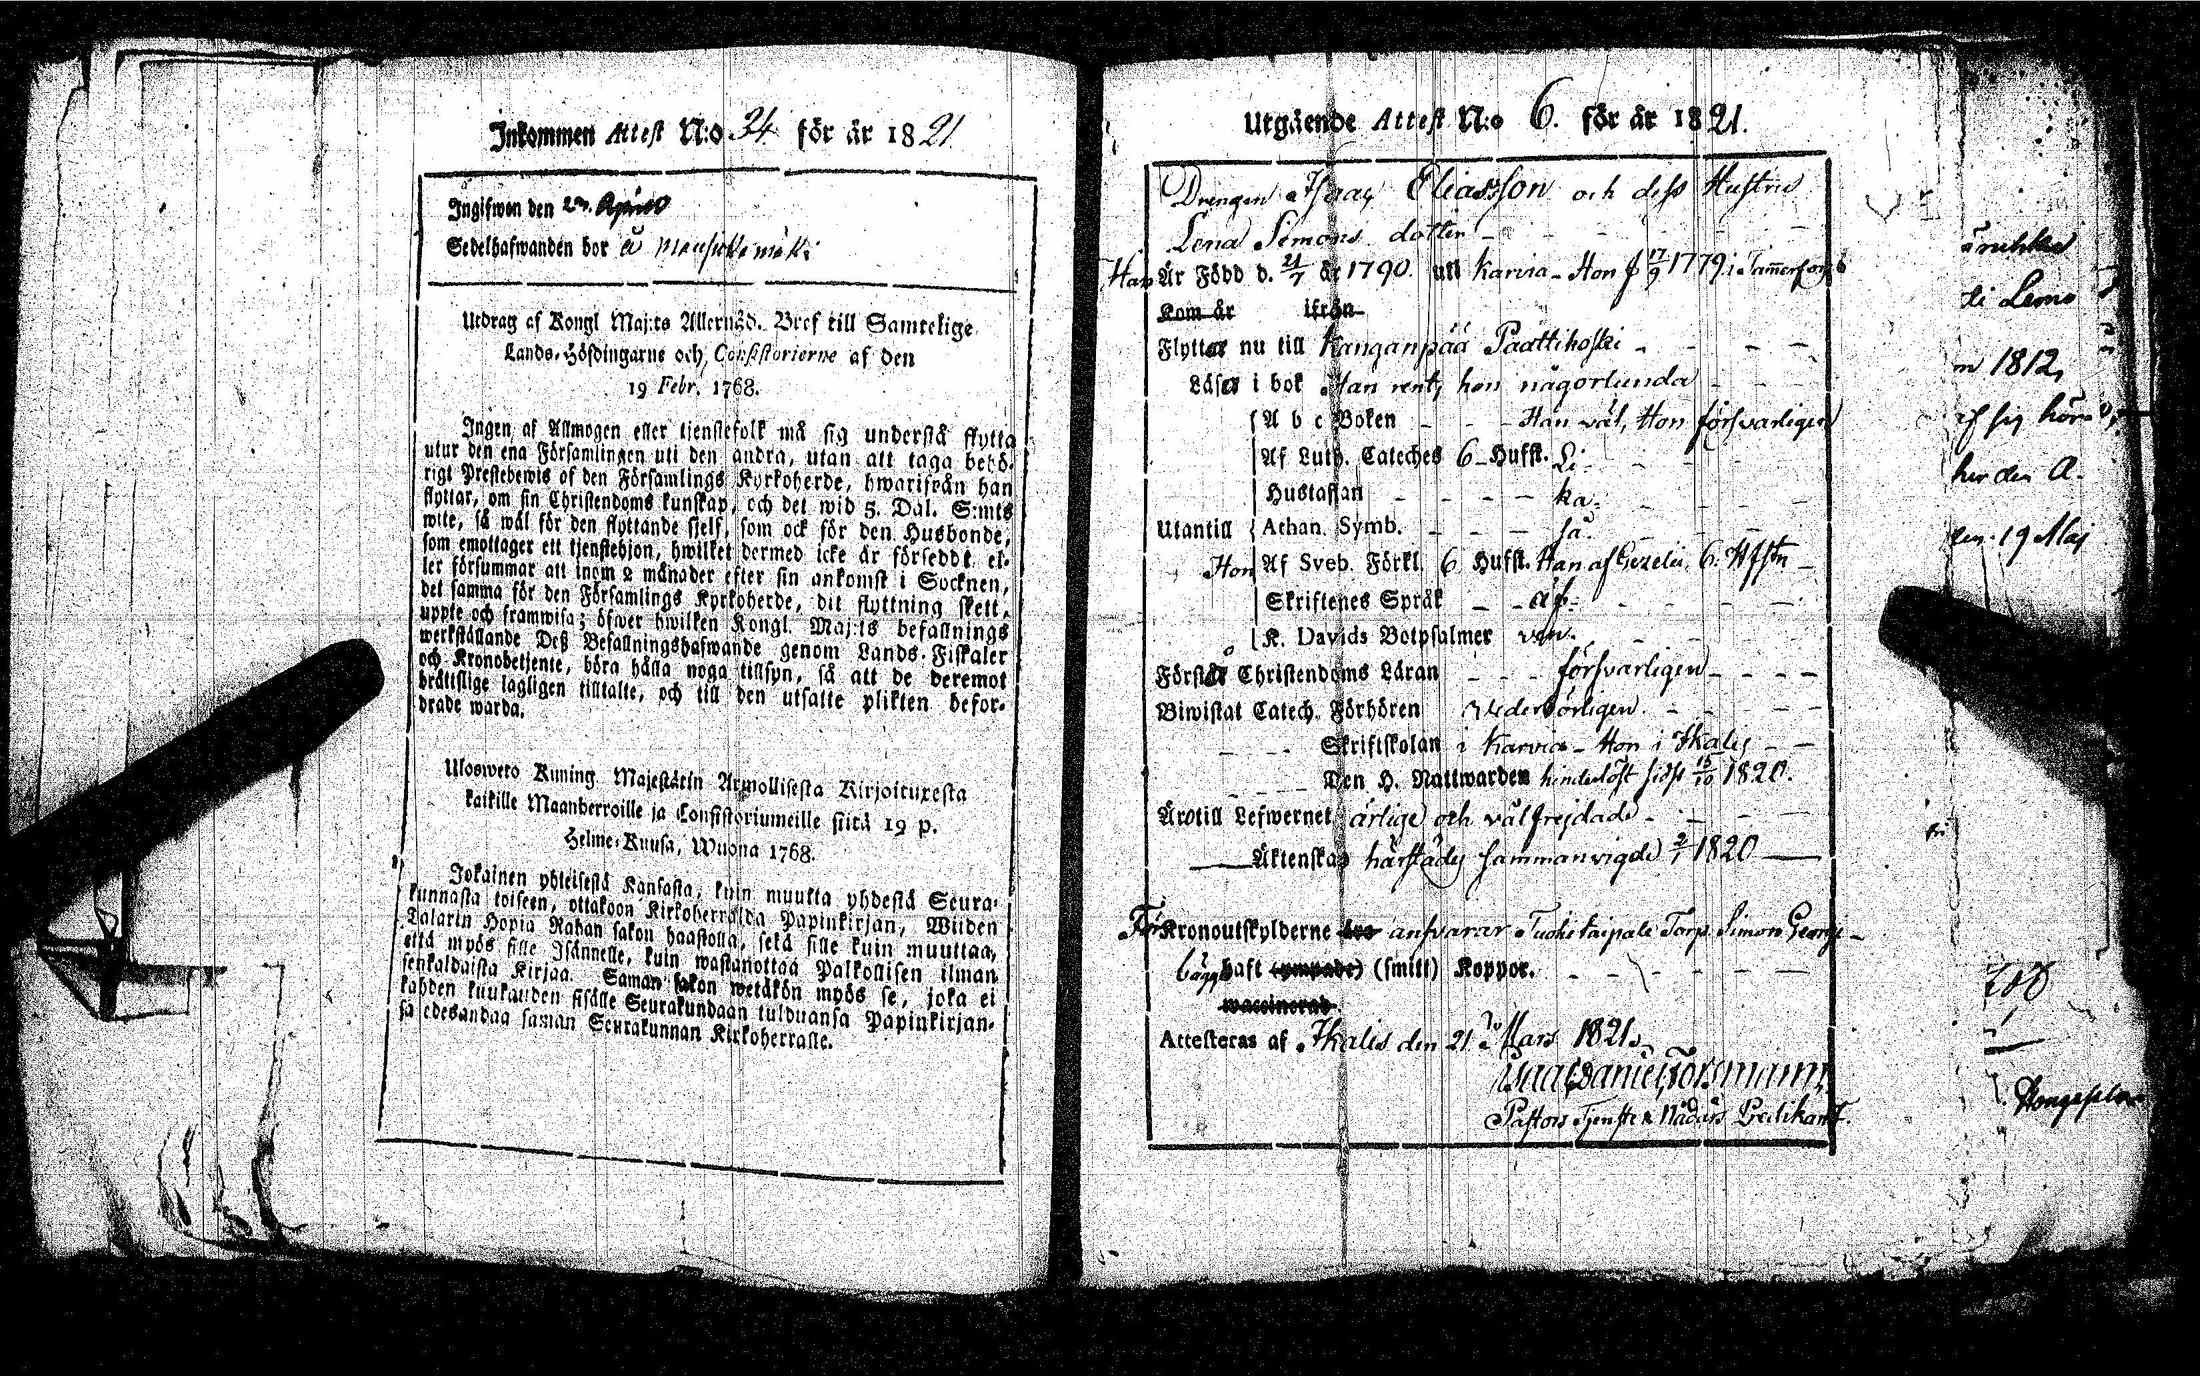 Inkommen Attest N:o 34 för år 1821
Ingifwen den 2 April
Sedelhafwanden bor å
Utdrag af Kongl Maj:ts Allernåd. Bref till Samtelige
Lands-Höfdingarne och Consistorierne af den
19 Febr. 1768.
Ingen af Allmogen eller tjenstefolk må sig understå flytta
utur den ena Församlingen uti den andra, utan att taga behö-
rigt Prestebewis of den Församlings Kyrkoherde, hwarifrån han
flyttar, om sin Christendoms kunskap, och det wid 5. Dal. S:mts
wite, så wäl för den flyttande sjelf, som ock för den Husbonde,
som emottager ett tjenstehjon, hwilket dermed icke är försedt, el-
ler försummar att inom 2 månader efter sin ankomst i Socknen,
det samma för den Församlings Kyrkoherde, dit flyttning skett,
uppte och framwisa; öfwer hwilken Kongl. Maj:ts befallnings
werkställande Deß Befallningshafwande genom Lands-Fiskaler
och Kronobetjente, böra hålla noga tillsyn, så att de deremot
bråttslige lagligen tilltalte, och till den utsatte plikten befor-
drade warda.
Ulosweto Kuning. Majestätin Armollisesta Kirjoituxesta
kaikille Maanherroille ja Consistoriumeille siitä 19 p.
Helme-Kuusa, Wuona 1768.
Jokainen yhteisestä Kansasta, kuin muutta yhdestä Seura-
kunnasta toiseen, ottakoon Kirkoherralda Papinkirjan, Wiiden
Talarin Hopia Rahan sakon haastolla, sekä sille kuin muuttaa,
että myös sille Isännelle, kuin wastanottaa Palkollisen ilman
senkaldaista Kirjaa. Saman sakon wetäkön myös se, joka ei
kahden kuukauden sisälle Seurakundaan tulduansa Papinkirjan-
sa edesandaa saman Seurakunnan Kirkoherralle.
Utgående Attest N:o 6. för år 1821.
Drengen Isaac Eliasson och dess Hustru
Lena Simons dotter
Han Är Född d. 21/7 år 1790. uti Karvia - Hon f 17/9 1779 i Tammerfors
Kom år ifrån
Flyttar nu till Kanganpää Paattikoski
Läser i bok Han rent, hon någorlunda
A b c Boken Han väl, Hon försvarligen
Af Luth. Cateches 6 Hufst. Li-
Hustaflan ka-
Utantill Athan. Symb. så.
Hon Af Sveb. Förkl. 6 Hufst. Han af Gezelii 6. Hfstn
Skriftenes Språk äf-
K. Davids Botpsalmer ven.
Förstå Christendoms Läran försvarligen
Biwistat Catech. Förhören vederbörligen.
Skriftskolan i Karvia - Hon i Ikalis
Den H. Nattwarden hinderlöst sidst 15/10 1820.
Äro till Lefwernet ärlige och välfrejdade
Äktenskap härstädes sammanvigde 2/1 1820
För Kronoutskylderne ansvarar Tuohitaipale Torp. Simon Georgs-
bägge haft (ympade) (smitt) Koppor.
waccinerad.
Attesteras af Ikalis den 21 Mars 1821.
Isaac Daniel Forsmann
Pastors Tjenste & Nådårs Predikant.
ti Lemo
1812,
af sig hör
her den A.
den 19 Maj